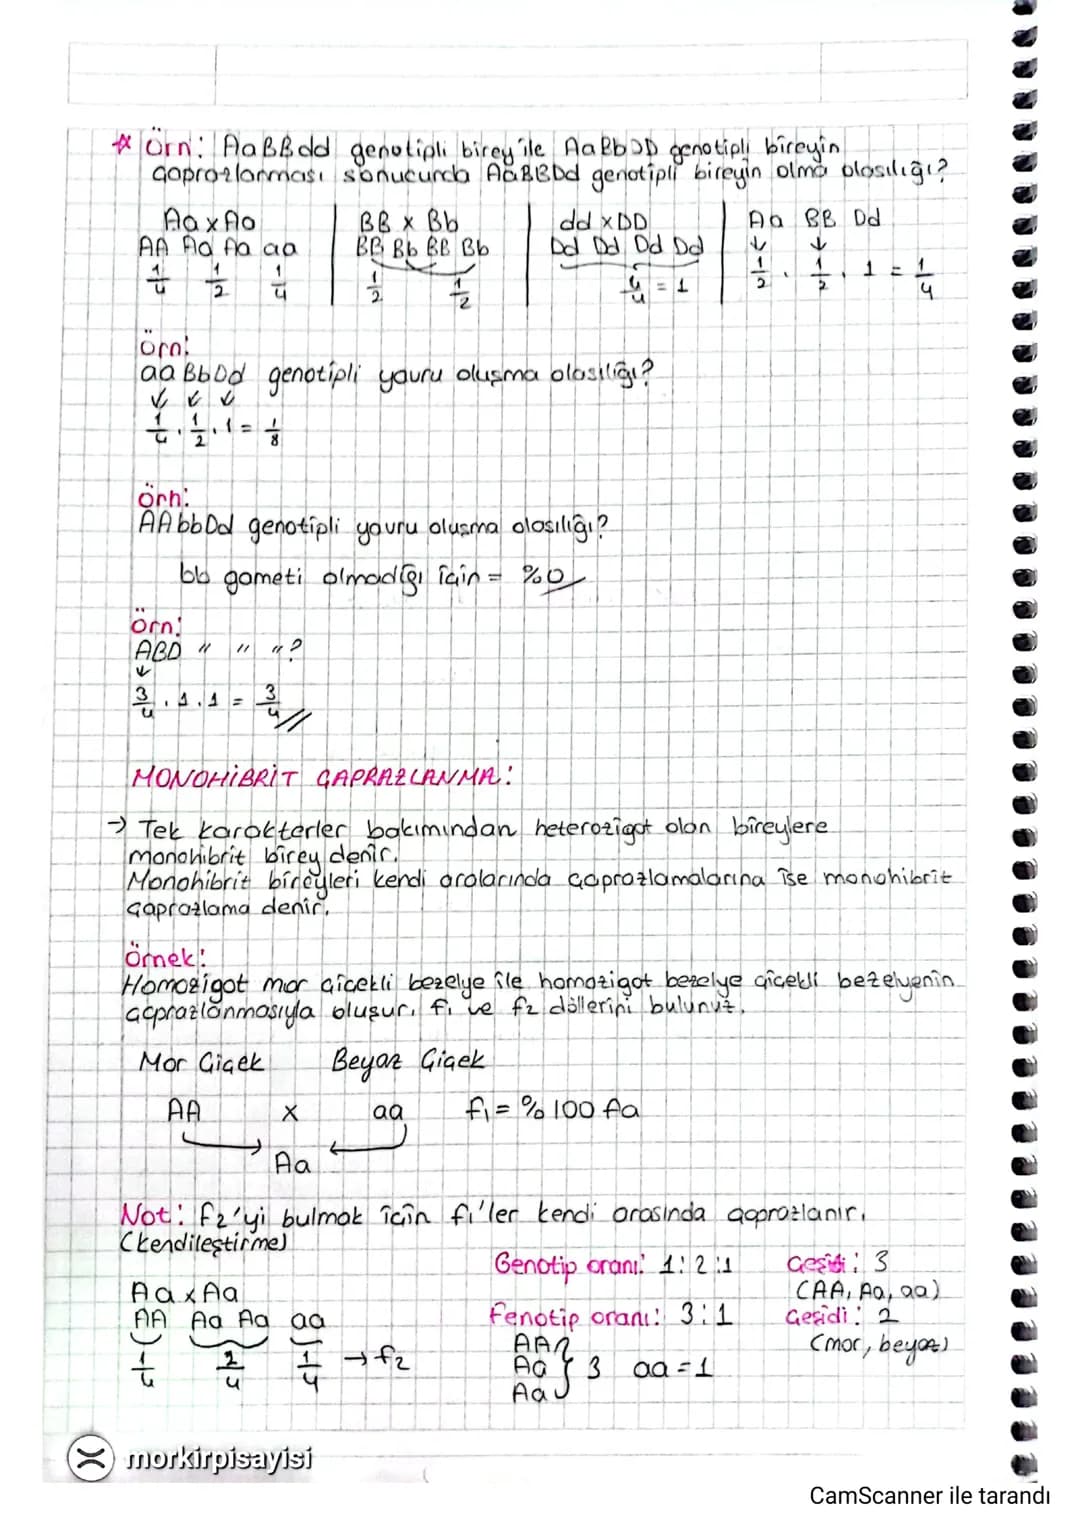 ☆ Örn: AaBBdd genotipli birey ile AaBbDD genotipli bireyin
çaprazlanması sonucunda AaBBDd genotipli bireyin olma olasılığı?
Aa x Aa
AA Aa Aa aa
1/4 1/2 1/4
BB x Bb
BB Bb BB Bb
1/2 1/2
dd x DD
Dd Dd Dd Dd
4/4 = 1
Aa BB Dd
↓ ↓
1/2 . 1/2 . 1 = 1/4
Örn:
aaBbDd genotipli yavru oluşma olasılığı?
↓ ↓ ↓
1/4 . 1/2 . 1 = 1/8
Örn:
AAbbDd genotipli yavru oluşma olasılığı?
bb gameti olmadığı için = %0
Örn:
ABD " " "?
↓
3/4 . 1 . 1 = 3/4 //
MONOHİBRİT ÇAPRAZLANMA:
→ Tek karakterler bakımından heterozigot olan bireylere
monohibrit birey denir.
Monohibrit bireyleri kendi aralarında çaprazlamalarına ise monohibrit
çaprazlama denir.
Örnek:
Homozigot mor çiçekli bezelye ile homozigot bezelye çiçekli bezelyenin
çaprazlanmasıyla oluşur. f1 ve f2 döllerini bulunuz.
Mor Çiçek Beyaz Çiçek
AA x aa f1 = %100 Aa
Aa
Not: f2'yi bulmak için f1'ler kendi arasında çaprazlanır.
(kendileştirme)
Aa x Aa
AA Aa Aa aa
1/4 2/4 1/4 → f2
Genotip oranı: 1:2:1 Çeşidi: 3
(AA, Aa, aa)
Fenotip oranı: 3:1 Çeşidi: 2
(mor, beyaz)
AA
Aa } 3 aa = 1
Aa
morkirpisayisi
CamScanner ile tarandı